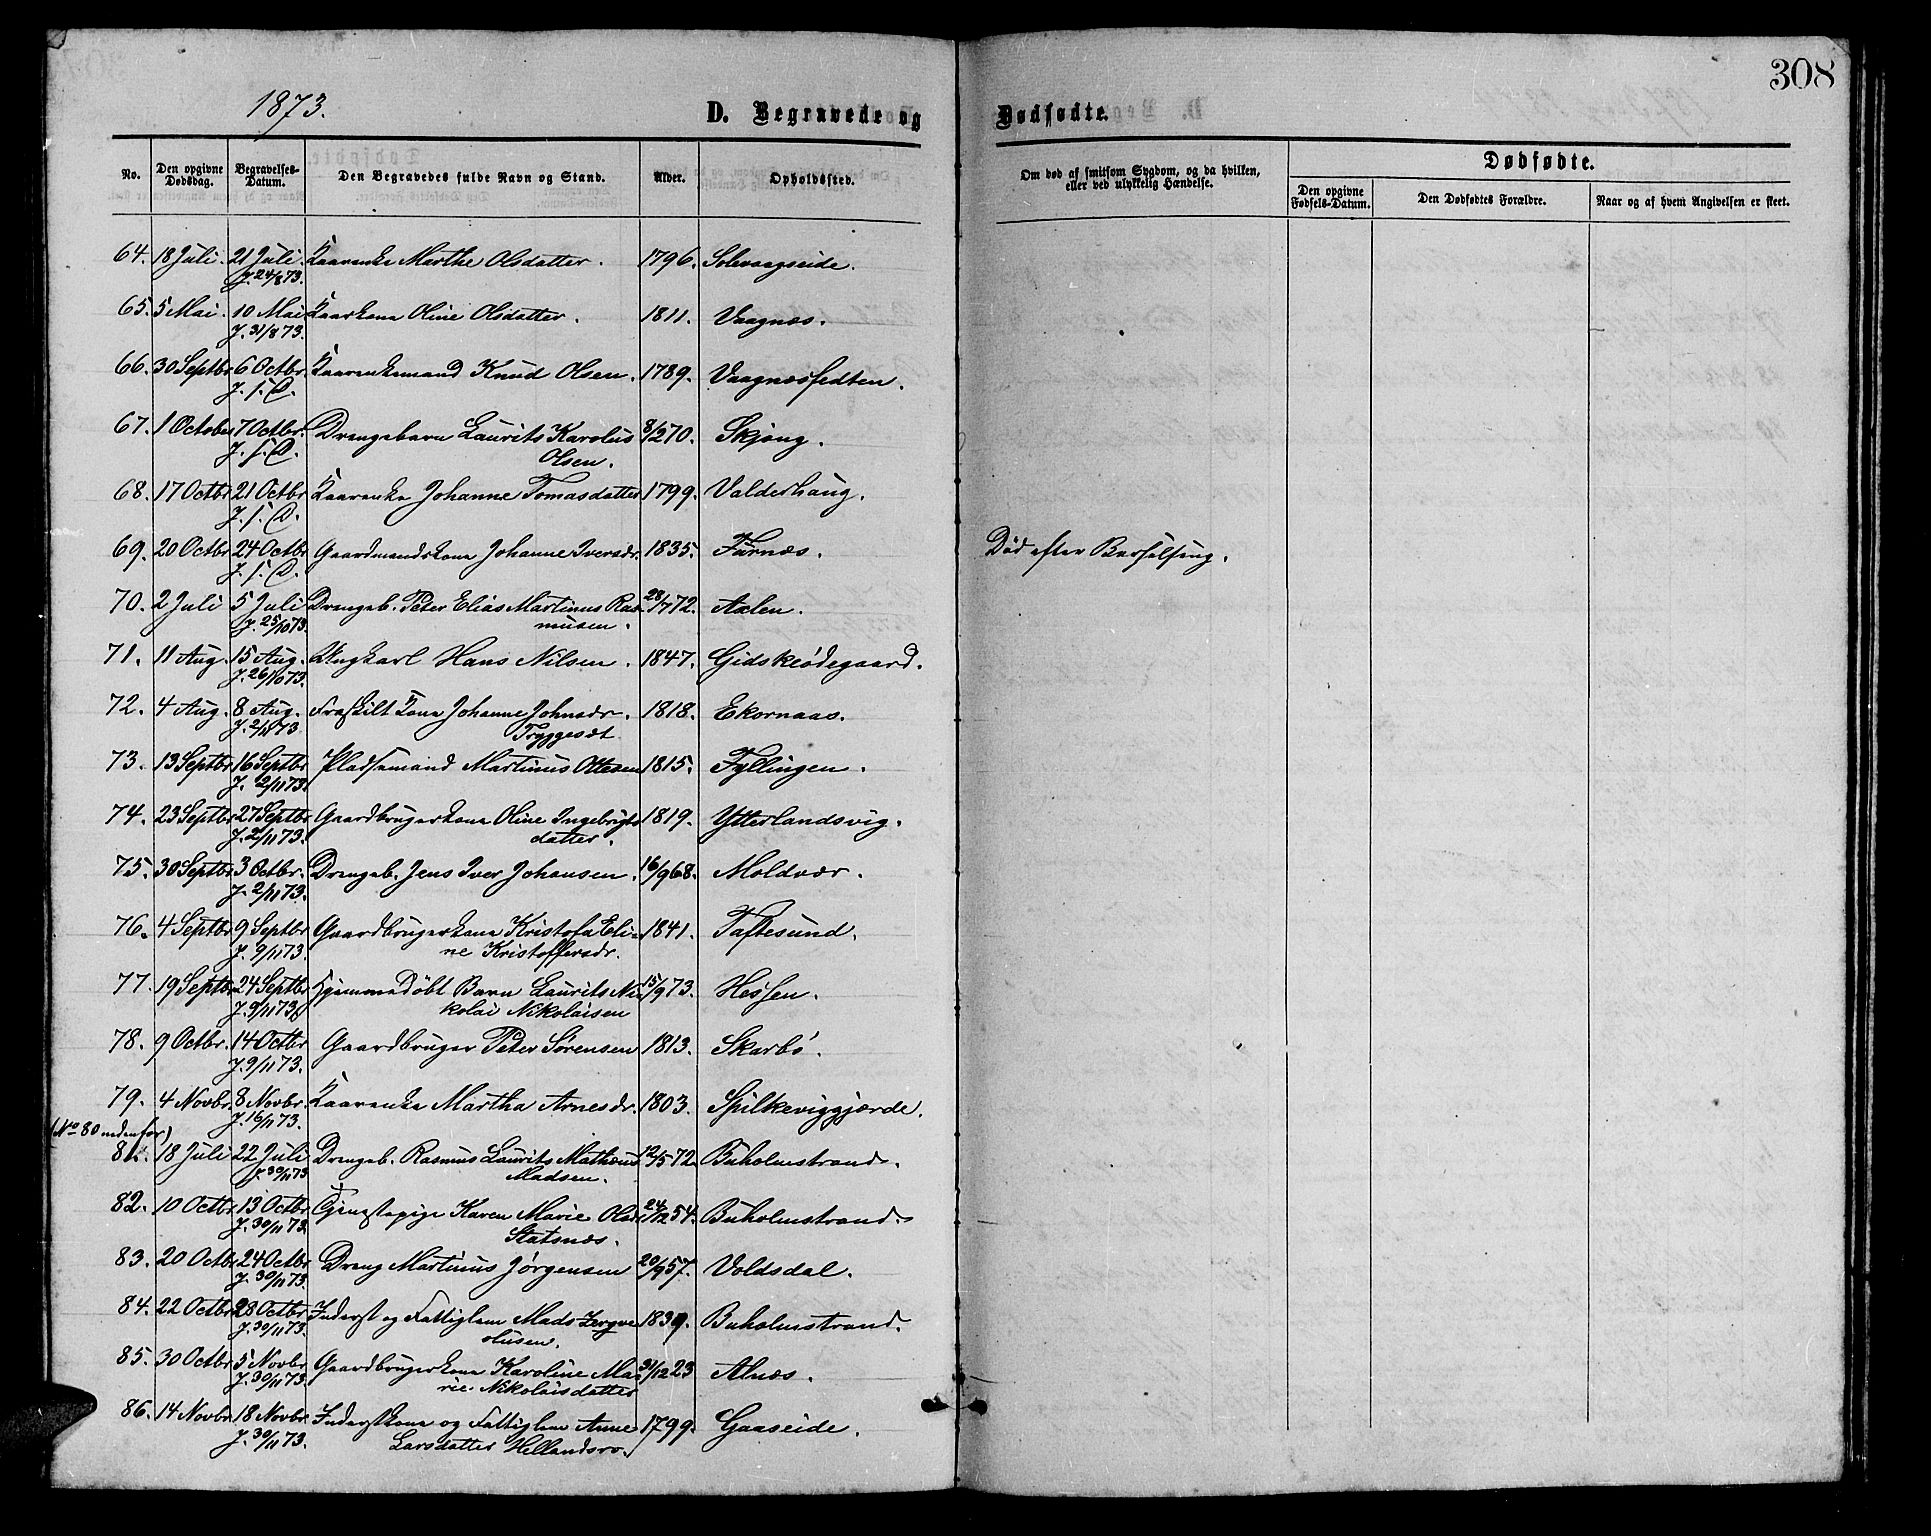 308
1873.
D. Begravede og Dødfødte.
No. Den opgivne Dødsdag. Begravelses-Datum. Den Begravedes fulde Navn og Stand. Alder. Opholdssted. Om død af smitsom Sygdom, og da hvilken, eller ved ulykkelig Hændelse. Dødfødte.
Den opgivne Fødsels-Datum. Den Dødfødtes Forældre. Naar og af hvem Angivelsen er skeet.
64. 18 Juli. 21 Juli. Kaarenke Marthe Olsdatter. 1796. Solevaagseide.
J. 24/8 73.
65. 5 Mai. 10 Mai Kaarkona Oline Olsdatter. 1811. Vaagnæs.
J. 31/8 73.
66. 30 Septbr 6 Octbr. Kaarenkemand Knud Olsen. 1789. Vaagnæsfedten.
J. f. C.
67. 1 October 7 Octbr. Drengebarn Laurits Karolus 8/2 70. Skjong.
J. f. C. Olsen.
68. 17 Octbr 21 Octbr Kaarenke Johanne Tomasdatter 1799. Valderhaug.
J. f. C.
69. 20 Octbr 24 Octbr Gaardmandskona Johanne Iversdr. 1835. Furnæs. Død efter Barselseng.
J. f. C.
70. 2 Juli 5 Juli Drengeb. Peter Elias Martinus Ras- 28/7 72. Axlen.
J. 25/10 73. musen.
71. 11 Aug. 15 Aug. Ungkarl Hans Nilsen. 1847. Gidskeødegaard.
J. 26/10 73.
72. 4 Aug. 8 Aug. Fraskilt Kona Johanne Johnsdr. 1818. Ekornaas.
J. 2/11 73 Tryggesæt
73. 13 Septbr 16 Septbr Pladsemand Martinus Ottesen 1815. Fyllingen.
J. 2/11 73.
74. 23 Septbr 27 Septbr Gaardbrugerkona Oline Ingebrigts 1819. Ytterlandsvig.
J. 2/11 73. datter.
75. 30 Septbr 3 Octbr. Drengeb. Jens Iver Johansen. 16/9 68. Moldvær.
J. 2/11 73.
76. 4 Septbr 9 Septbr Gaardbrugerkona Kristofa Eli- 1841. Taftesund.
J. 9/11 73. ne Kristoffersdr.
77. 19 Septbr 24 Septbr Hjemmedøbt Barn Laurits Ni- 15/9 73. Hessen.
J. 9/11 73. kolai Nikolaisen
78. 9 Octbr. 14 Octbr Gaardbruger Peter Sørensen 1813. Skarbø.
J. 9/11 73.
79. 4 Novbr 8 Novbr. Kaarenke Martha Arnesdr. 1803. Spilkeviggjærde.
J. 16/11 73.
(No 80 nedenfor)
81. 18 Juli 22 Juli Drengeb. Rasmus Laurits Mathæus 12/5 72. Buholmstrand.
J. 30/11 73 Madsen.
82. 10 Octbr 13 Octbr Tjenstepige Karen Marie Olsdr 24/12 54. Buholmstrand.
J. 30/11 73. Statsnæs.
83. 20 Octbr 24 Octbr Dreng Martinus Jørgensen 20/9 57. Voldsdal.
J. 30/11 73.
84. 22 Octbr 28 Octbr Inderst og Fattiglem Mads 1839. Buholmstrand.
J. 30/11 73. olusen.
85. 30 Octbr 5 Novbr Gaardbrugerkona Karoline Ma- 31/12 23 Alnæs.
J. 30/11 73. rie Nikolaisdatter
86. 14 Novbr. 18 Novbr Inderstkona og Fattiglem Anne 1799. Gaaseide.
J. 30/11 73. Larsdatter Hellandsro.